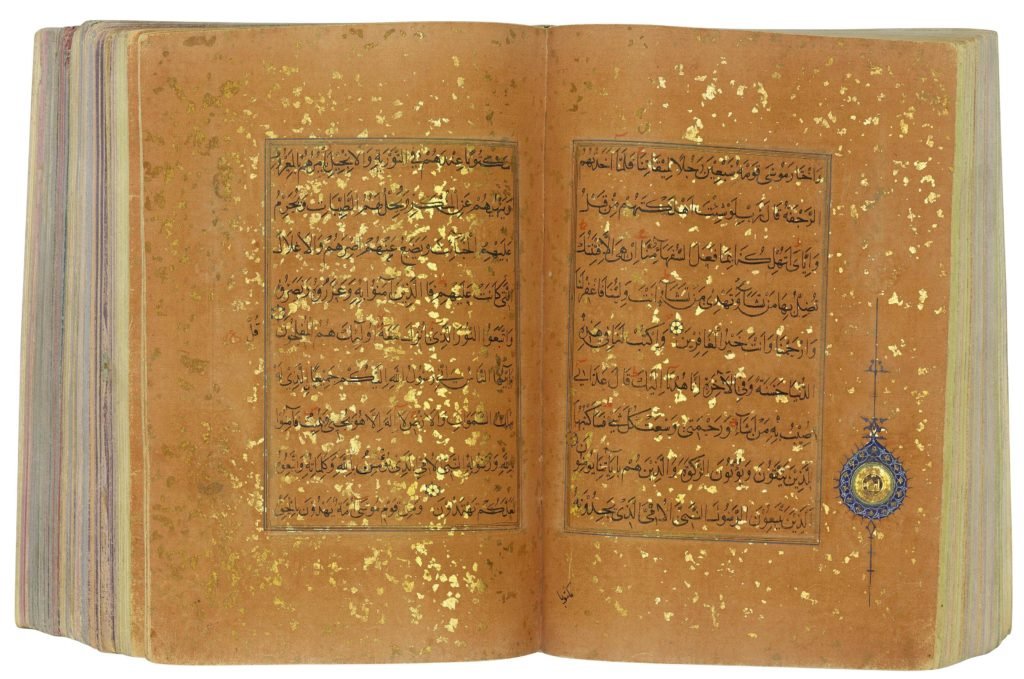 وَاخْتَارَ مُوسَى قَوْمَهُ سَبْعِينَ رَجُلًا لِمِيقَاتِنَا فَلَمَّا اَخَذَتْهُمُ
الرَّجْفَةُ قَالَ رَبِّ لَوْ شِئْتَ اَهْلَكْتَهُمْ مِنْ قَبْلُ
وَاِيَّايَ اَتُهْلِكُنَا بِمَا فَعَلَ السُّفَهَاءُ مِنَّا اِنْ هِيَ اِلَّا فِتْنَتُكَ
تُضِلُّ بِهَا مَنْ تَشَاءُ وَتَهْدِي مَنْ تَشَاءُ اَنْتَ وَلِيُّنَا فَاغْفِرْ لَنَا
وَارْحَمْنَا وَاَنْتَ خَيْرُ الْغَافِرِينَ وَاكْتُبْ لَنَا فِي هٰذِهِ
الدُّنْيَا حَسَنَةً وَفِي الْآخِرَةِ اِنَّا هُدْنَا اِلَيْكَ قَالَ عَذَابِي
اُصِيبُ بِهِ مَنْ اَشَاءُ وَرَحْمَتِي وَسِعَتْ كُلَّ شَيْءٍ فَسَاَكْتُبُهَا
لِلَّذِينَ يَتَّقُونَ وَيُؤْتُونَ الزَّكٰوةَ وَالَّذِينَ هُمْ بِآيَاتِنَا يُؤْمِنُونَ
الَّذِينَ يَتَّبِعُونَ الرَّسُولَ النَّبِيَّ الْاُمِّيَّ الَّذِي يَجِدُونَهُ
مكتوبا
مَكْتُوبًا عِنْدَهُمْ فِي التَّوْرٰيةِ وَالْاِنْجِيلِ يَأْمُرُهُمْ بِالْمَعْرُوفِ
وَيَنْهٰيهُمْ عَنِ الْمُنْكَرِ وَيُحِلُّ لَهُمُ الطَّيِّبَاتِ وَيُحَرِّمُ
عَلَيْهِمُ الْخَبَائِثَ وَيَضَعُ عَنْهُمْ اِصْرَهُمْ وَالْاَغْلَالَ
الَّتِي كَانَتْ عَلَيْهِمْ فَالَّذِينَ آمَنُوا بِهِ وَعَزَّرُوهُ وَنَصَرُوهُ
وَاتَّبَعُوا النُّورَ الَّذِي اُنْزِلَ مَعَهُ اُولٰئِكَ هُمُ الْمُفْلِحُونَ قُلْ
يَا اَيُّهَا النَّاسُ اِنِّي رَسُولُ اللّٰهِ اِلَيْكُمْ جَمِيعًا الَّذِي لَهُ
مُلْكُ السَّمٰوَاتِ وَالْاَرْضِ لَا اِلٰهَ اِلَّا هُوَ يُحْيِي وَيُمِيتُ فَآمِنُوا
بِاللّٰهِ وَرَسُولِهِ النَّبِيِّ الْاُمِّيِّ الَّذِي يُؤْمِنُ بِاللّٰهِ وَكَلِمَاتِهِ وَاتَّبِعُوهُ
لَعَلَّكُمْ تَهْتَدُونَ وَمِنْ قَوْمِ مُوسَى اُمَّةٌ يَهْدُونَ بِالْحَقِّ